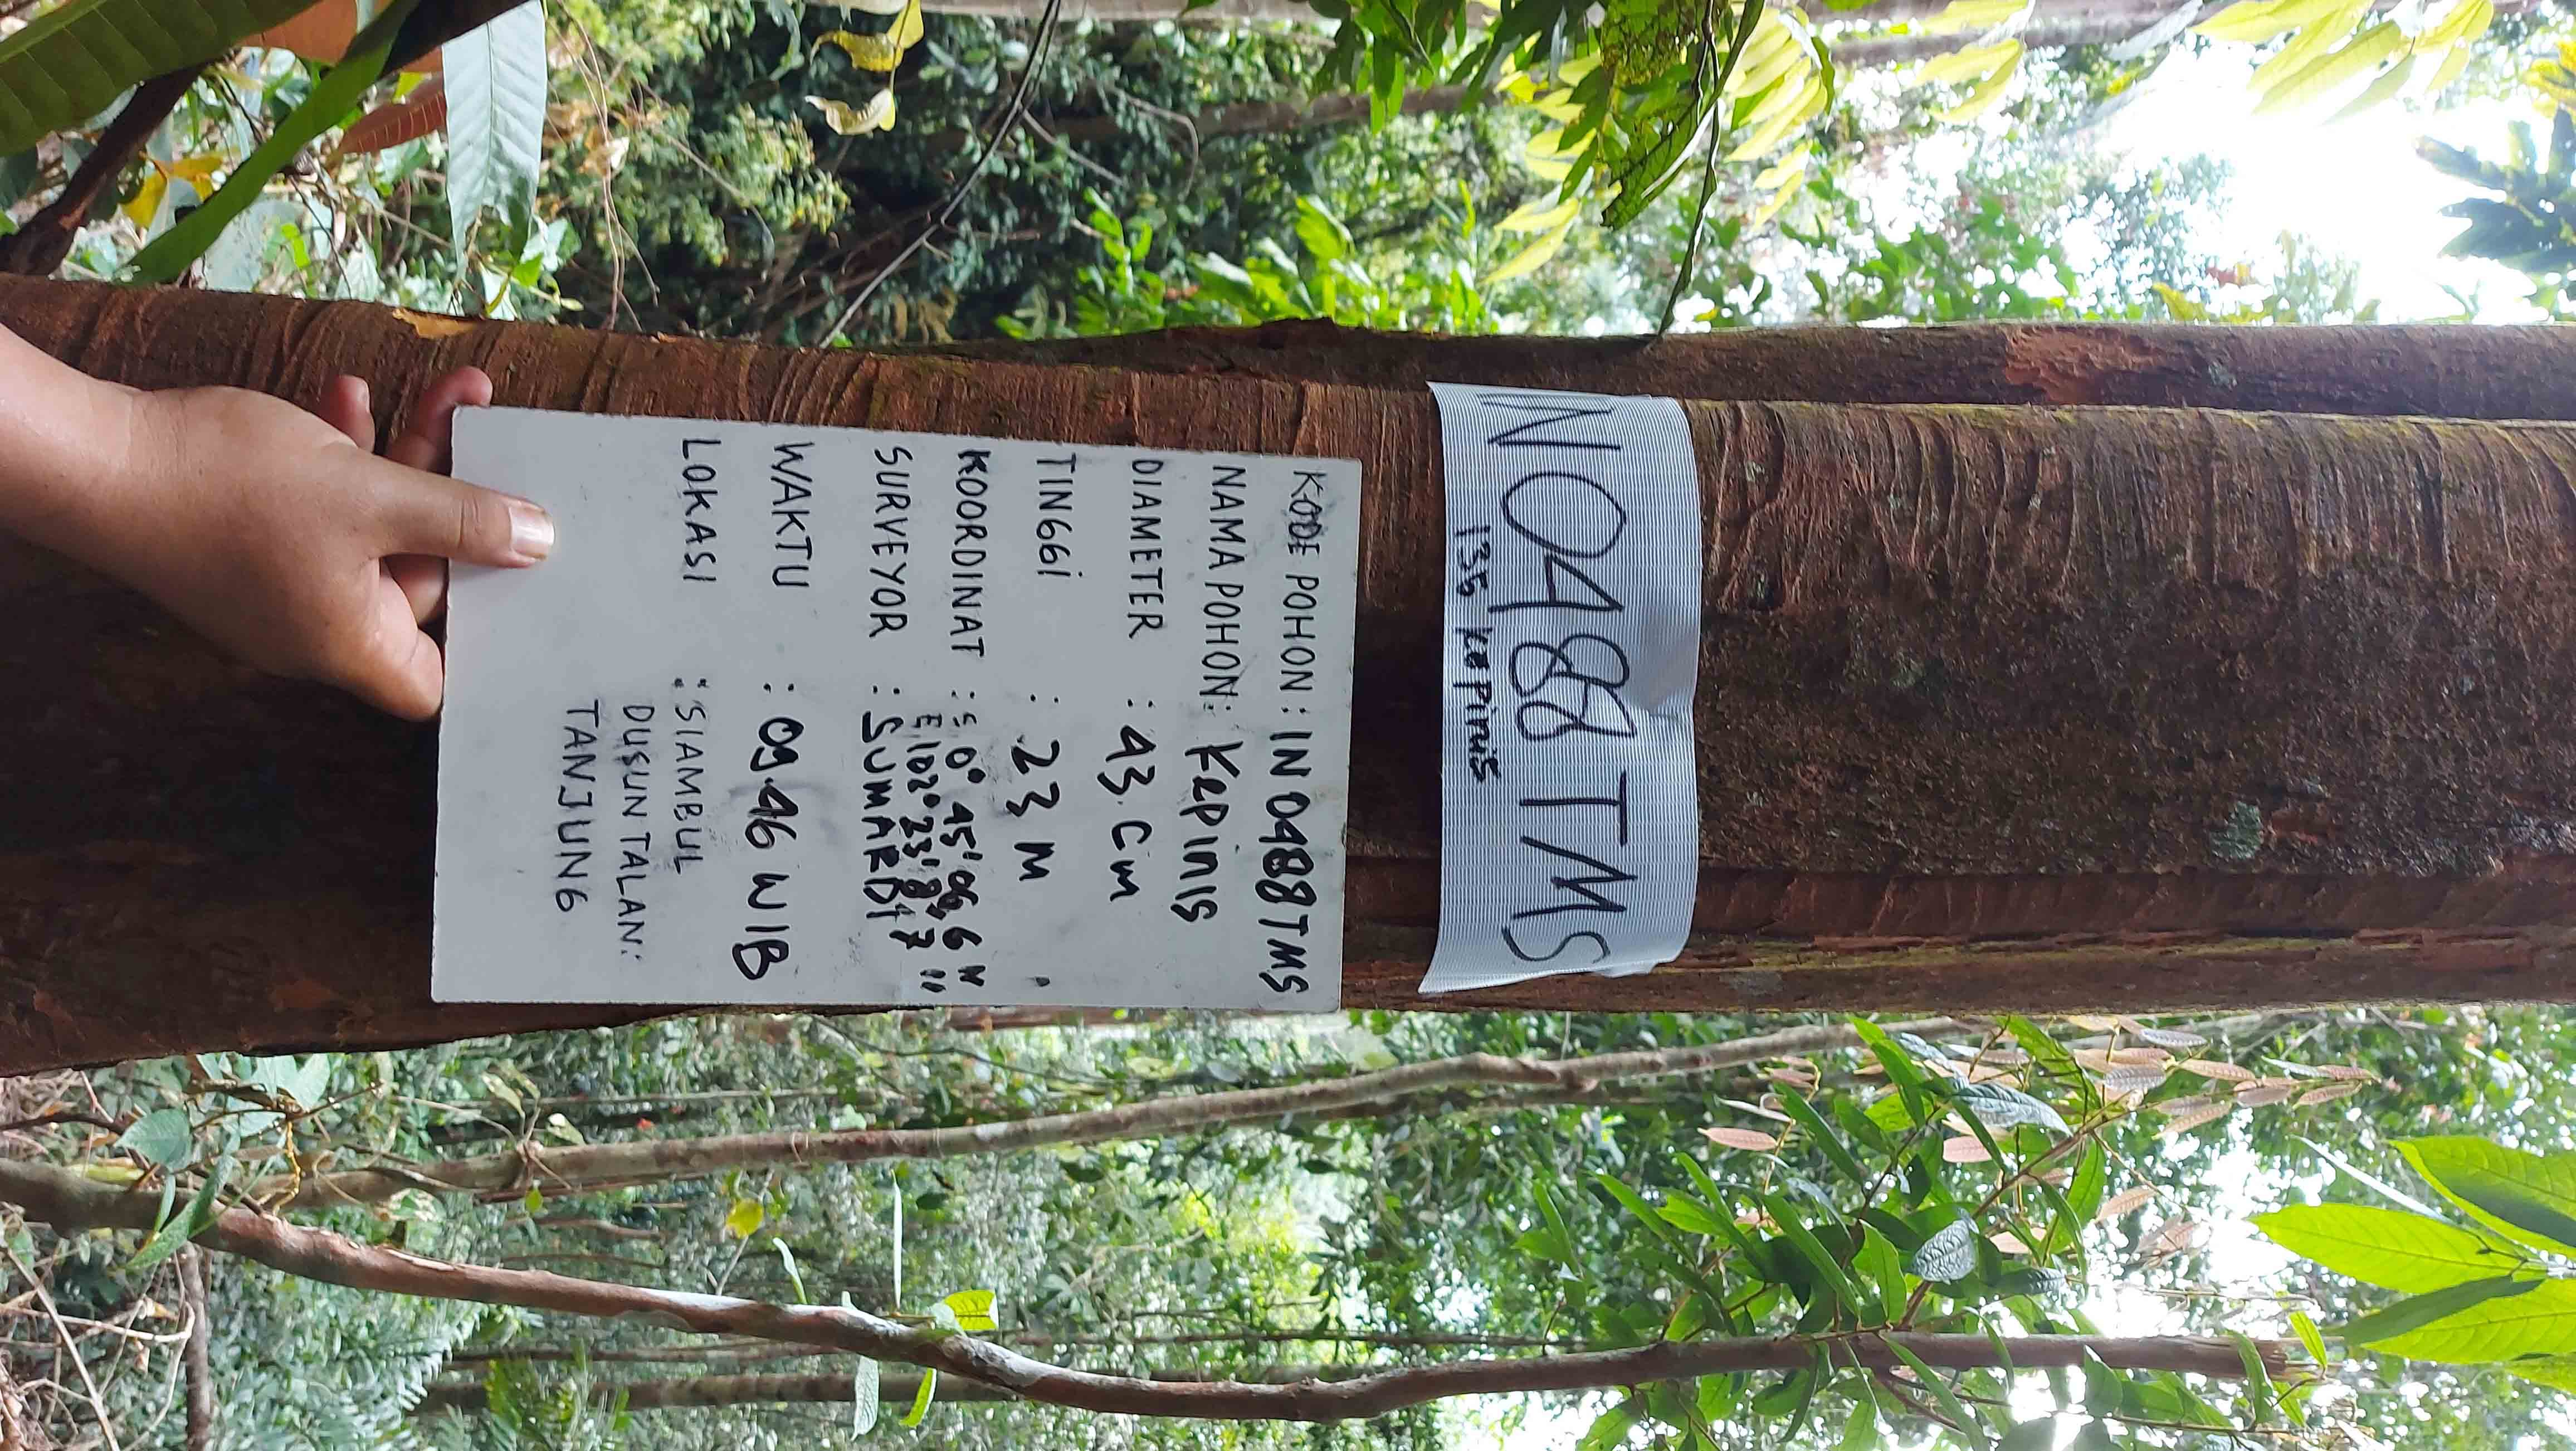 IN0488TMS
135 Kepinis
KODE POHON : IN0488TMS
NAMA POHON : Kepinis
DIAMETER : 43. Cm
TINGGi : 23 M
KOORDINAT : S 0° 45' 06.6"
E 102° 23' 8.7"
SURVEYOR : SUMARDI
WAKTU : 09.46 WIB
LOKASI : SIAMBUL
DUSUN TALAN:
TANJUNG